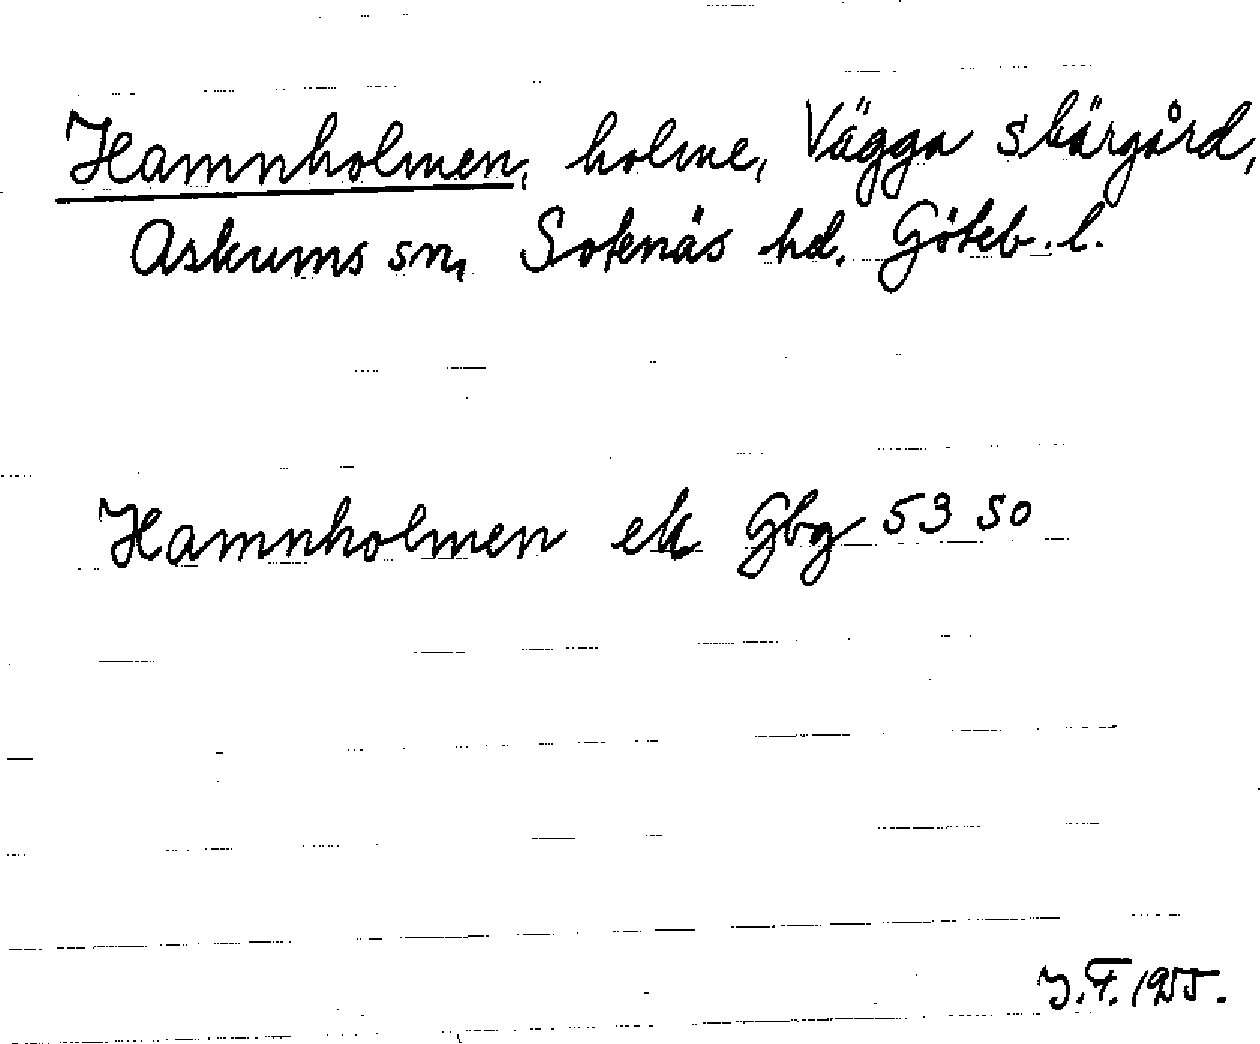 Hamnholmen, holme, Vägga skärgård,
Askums sn, Sotenäs hd. Göteb. l.
Hamnholmen ek Gbg 53 SO
Y.F. 1955.